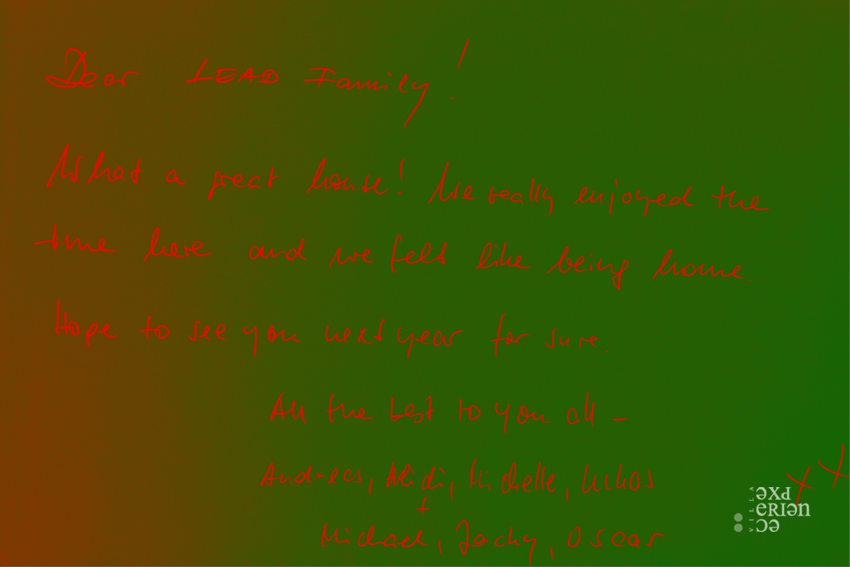 Dear LEAD Family!
What a great house! We really enjoyed the
time here and we felt like being home.
Hope to see you next year for sure.
All the best to you all –
Andreas, Michelle,
+
Michael, Jacky, Oscar
XX
VILLA
EXPERIENCE